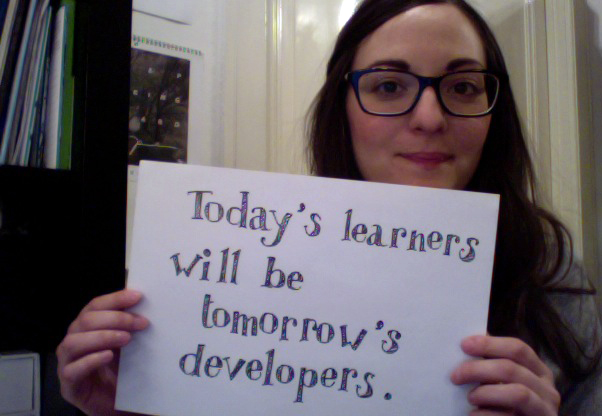 Today's learners
will be
tomorrow's
developers.